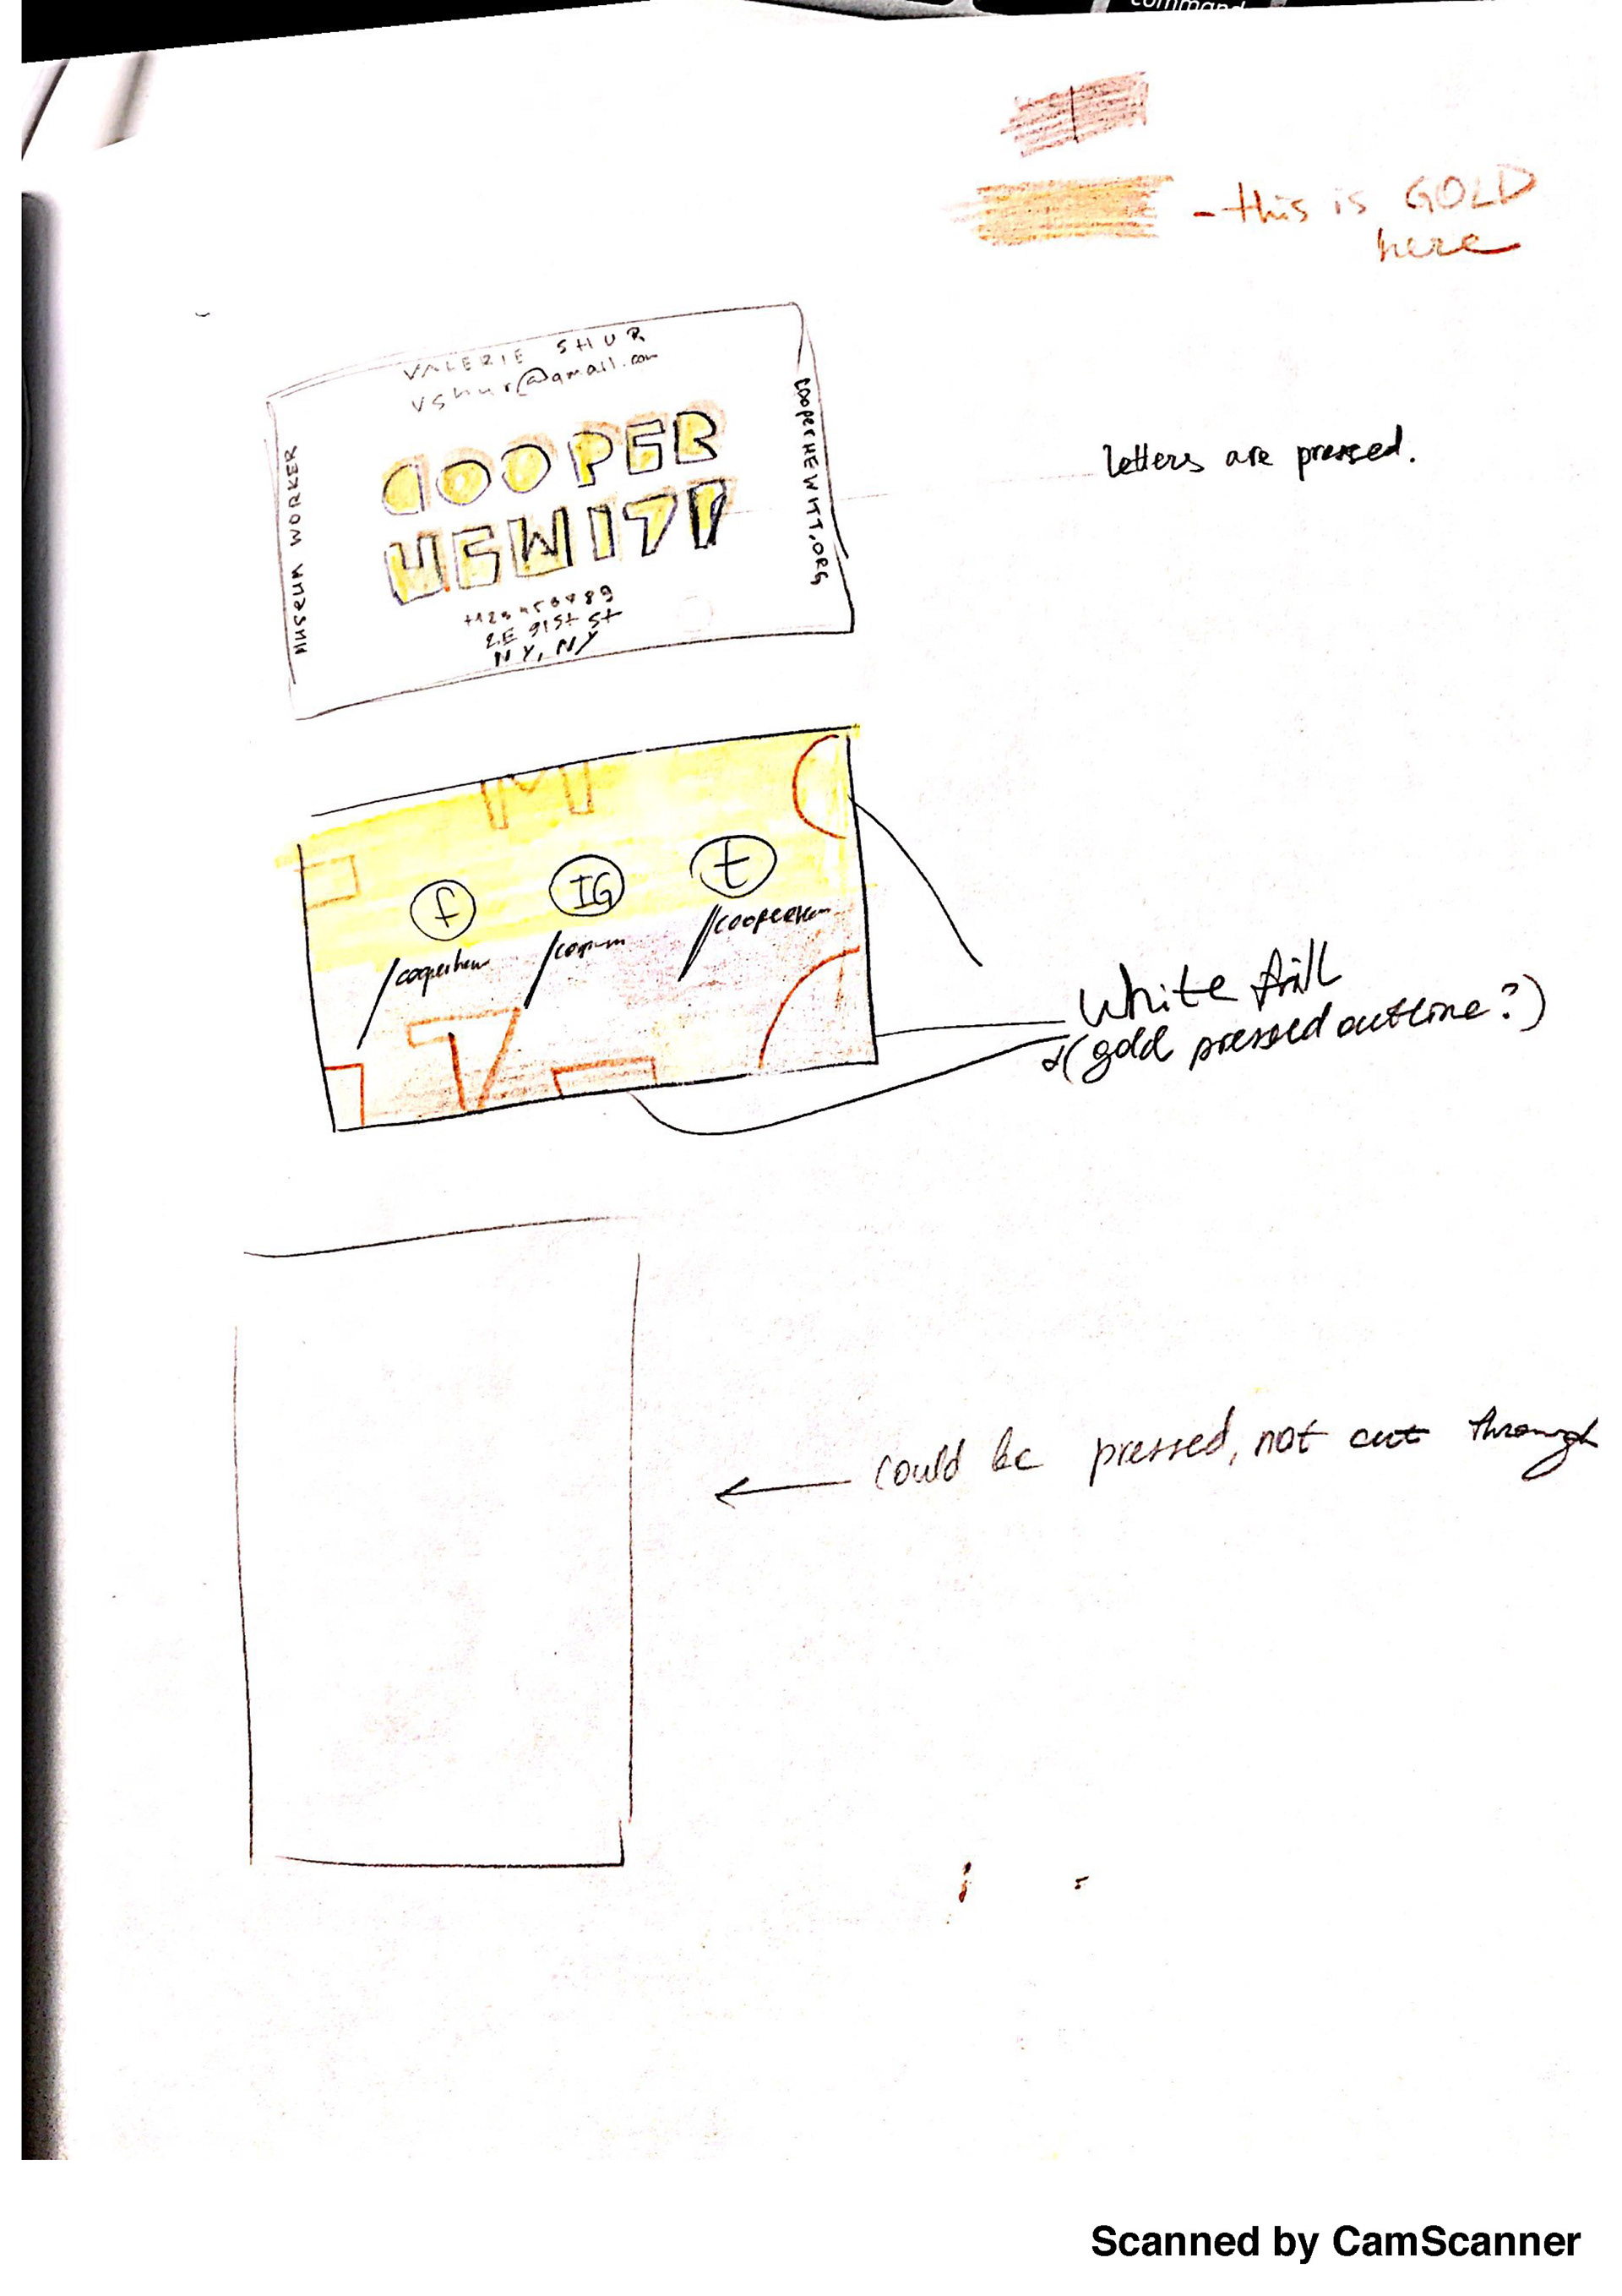 command
- this is GOLD
here
VALERIE SHUR
vshur@gmail.com
MUSEUM WORKER
COOPER
HEWITT
cooperHEWITT.ORG
2E 91st st
NY, NY
letters are pressed.
M
f
IG
t
/cooperhew
/cooperhew
White fill
(gold pressed outline?)
could be pressed, not cut through
Scanned by CamScanner